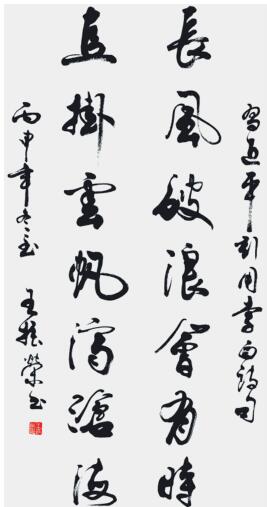 習近平引用李白詩句
長風破浪會有時
直掛雲帆濟滄海
丙申年冬至
王振榮書